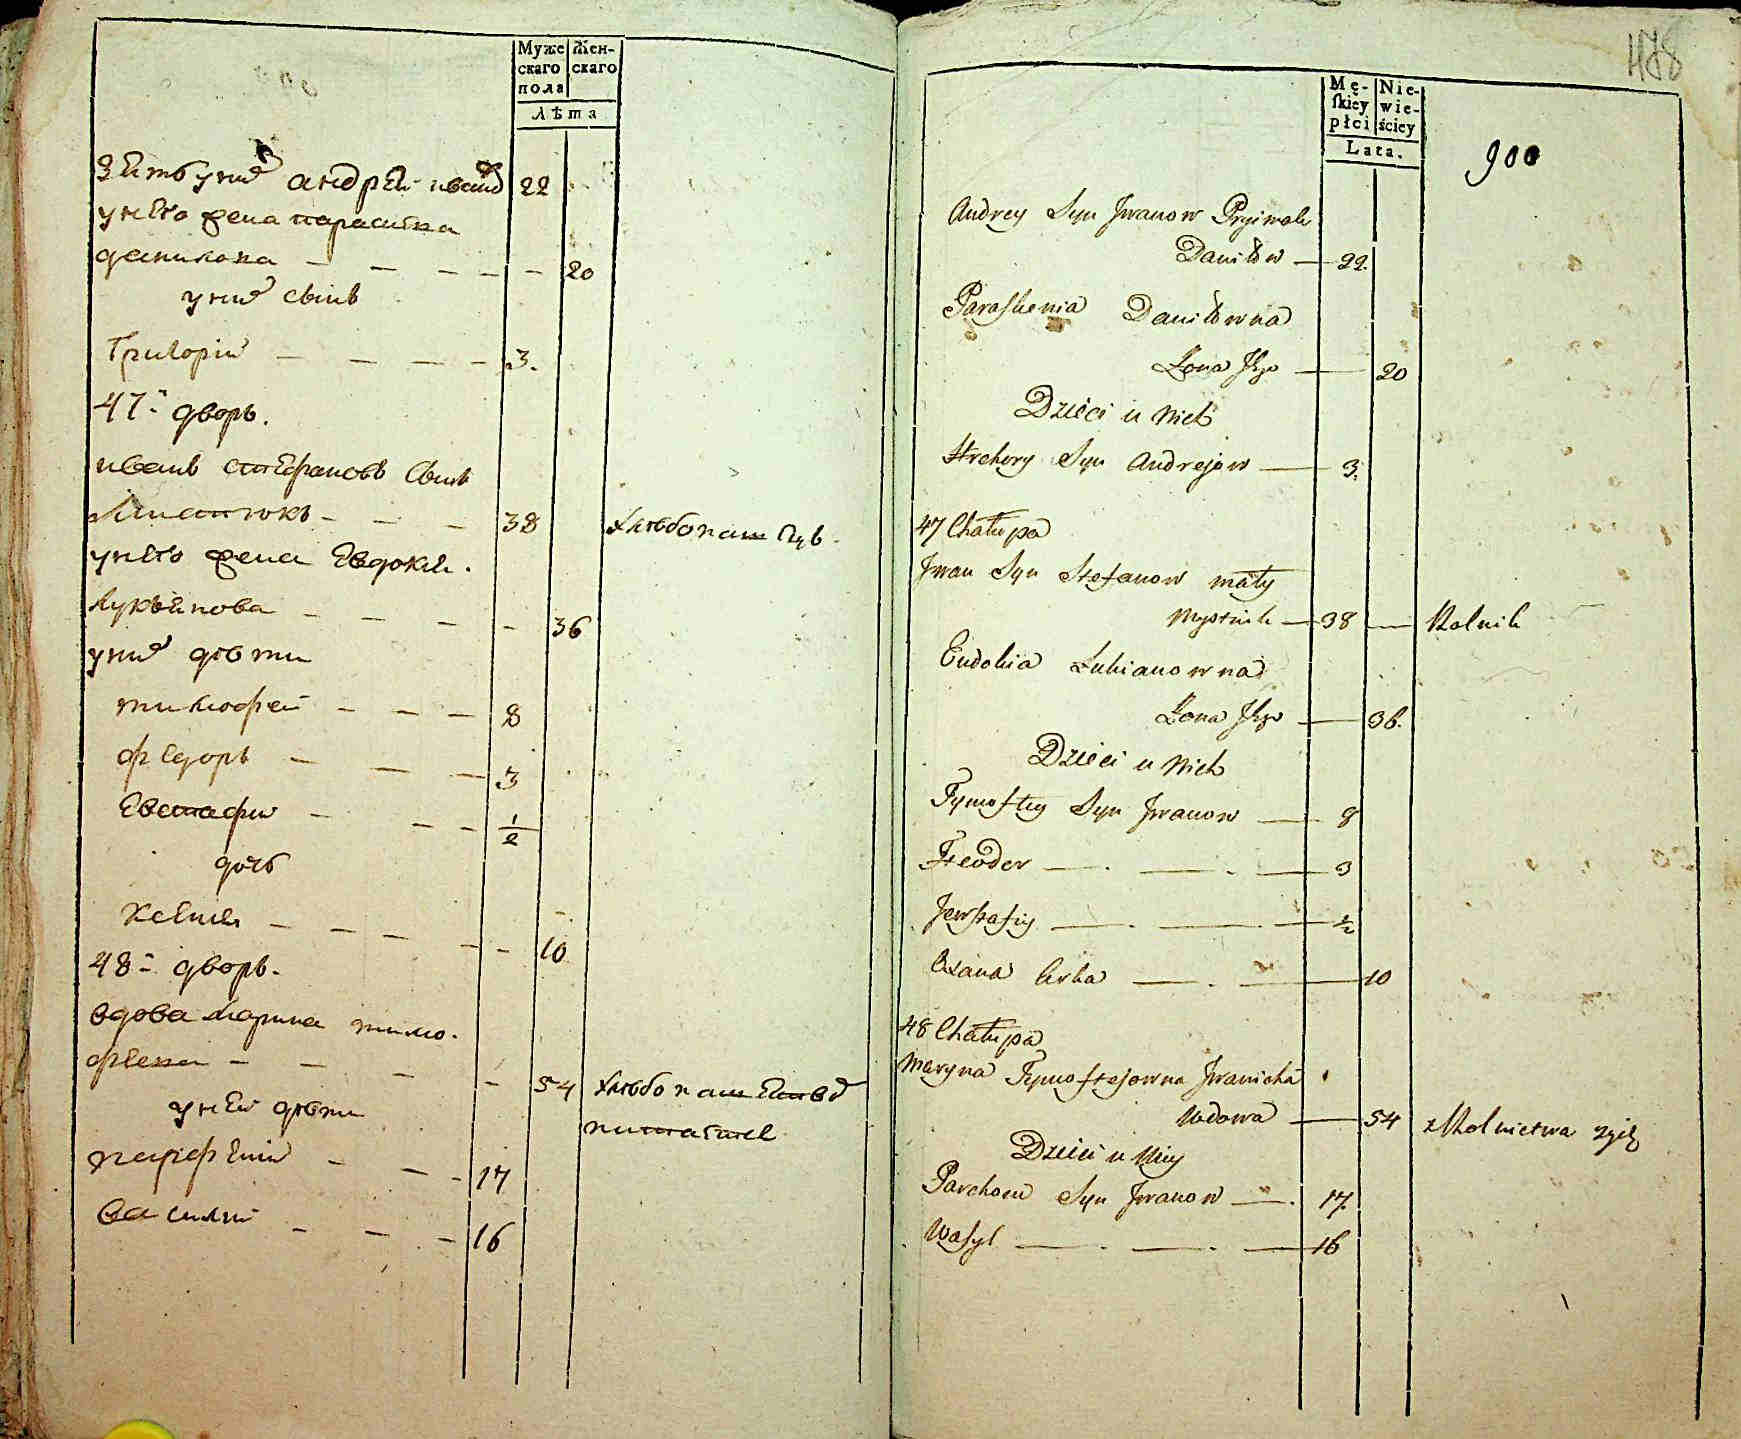 Муже
скаго
пола
Жен-
скаго
лѣта
Зять у них андрей иванов 22
у него жена параскa
данилова 20
у них сынъ
Григорiй 3.
47-й дворъ.
иванъ стефановъ сынъ
38 хлѣбопашецъ
у него жена Евдокия
лукьянова 36
у них дѣти
тимофей 8
федоръ 3
Евстафiй 1/2
дочь
Ксения 10
48-й дворъ.
вдова марина тимо-
феева 54 хлѣбопашеством
питается
у ней дѣти
парфенiй 17
василiй 16
478
Mę-
skiey
płci
Nie-
wie-
ściey
Lata.
900
Andrey Syn Jwanow Pryimak
Daniłow 22
Paraskewia Daniłowna
Żona Jego 20
Dzieci u Nich
Hrehory Syn Andrejow 3.
47 Chałupa
Jwan Syn Stefanow mały
38 Rolnik
Eudokia Łukianowna
Żona Jego 36.
Dzieci u Nich
Tymoftey Syn Jwanow 8
Fteodor 3
Jewstafiy 1/2
Axana Corka 10
48 Chałupa
Maryna Tymoftejowna Jwanicha
Wdowa 54 z Rolnictwa żyie
Dzieci u Niey
Parchom Syn Jwanow 17.
Wasyl 16